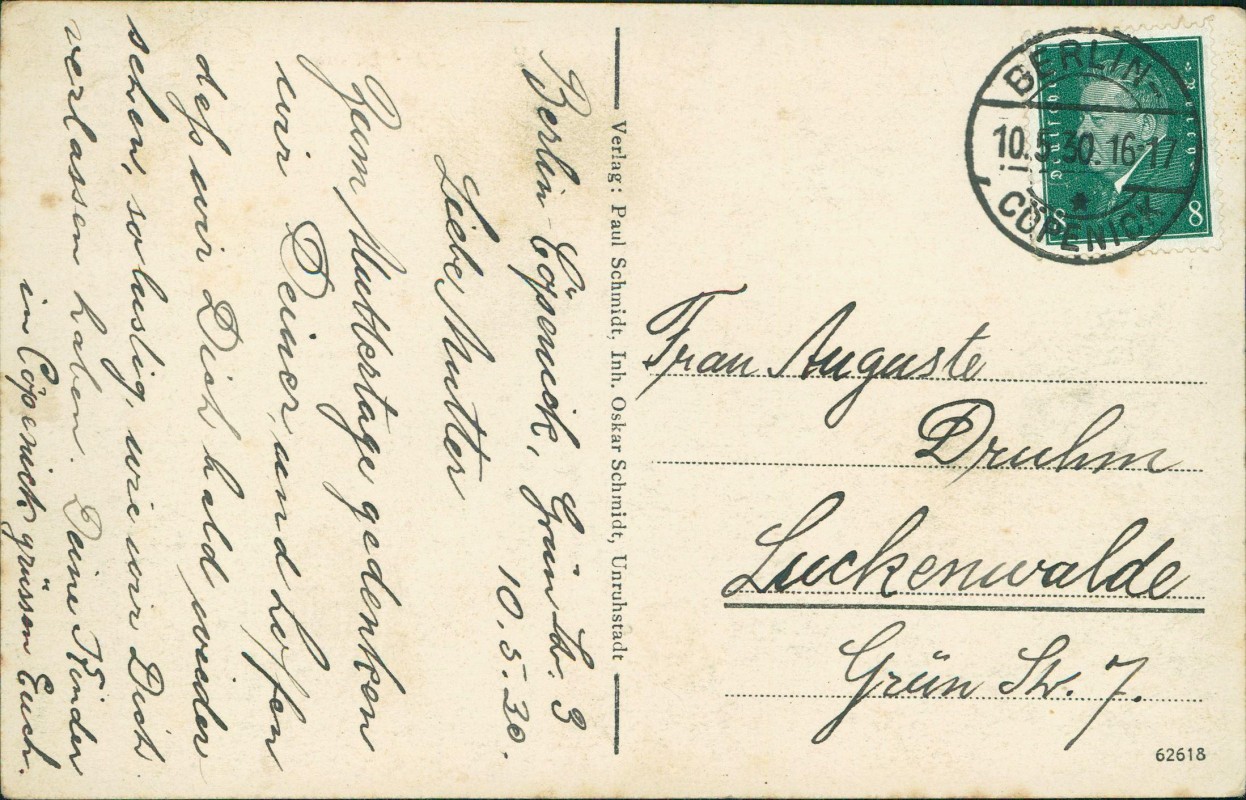 Berlin-Cöpenick, Grün Str. 3
10.5.30.
Liebe Mutter
Zum Muttertage gedenken
wir Deiner, und hoffen
daß wir Dich bald wieder
sehen, so lustig, wie wir Dich
verlassen haben. Deine Kinder
in Cöpenick grüssen Euch.
Verlag: Paul Schmidt, Inh. Oskar Schmidt, Unruhstadt
BERLIN-
10.5.30. 16-17
*
CÖPENICK
8
8
Frau Auguste
Druhm
Luckenwalde
Grün Str. 7.
62618